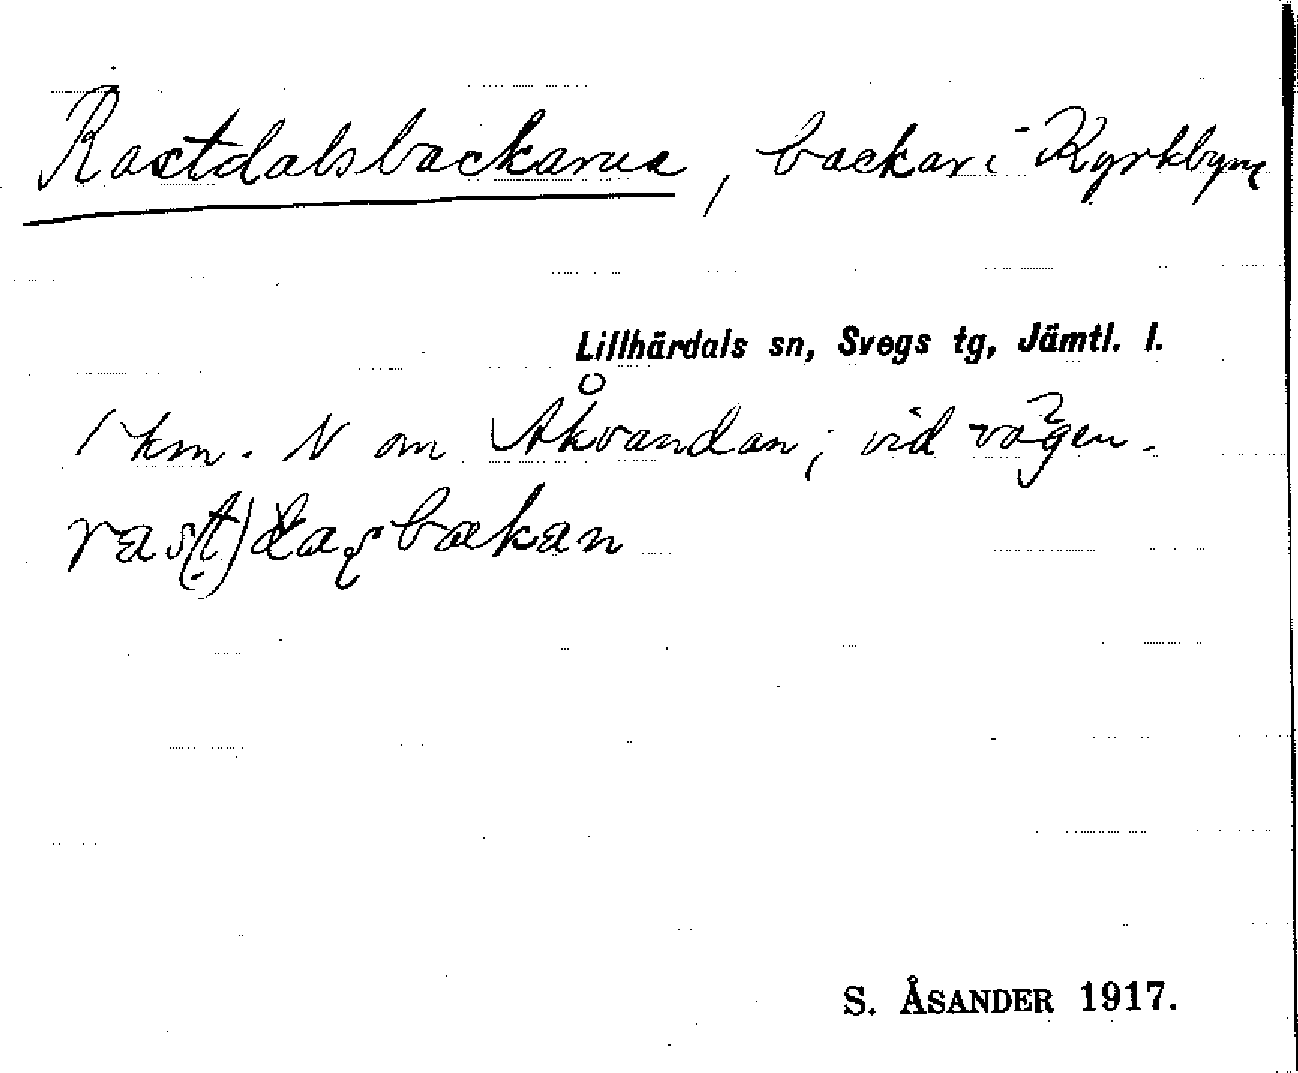 Rastdalsbackarna, backar i Kyrkbyn
Lillhärdals sn, Svegs tg, Jämtl. l.
1 km. N om Åkvandan; vid vägen.
ras(t)daṣbakan
S. ÅSANDER 1917.